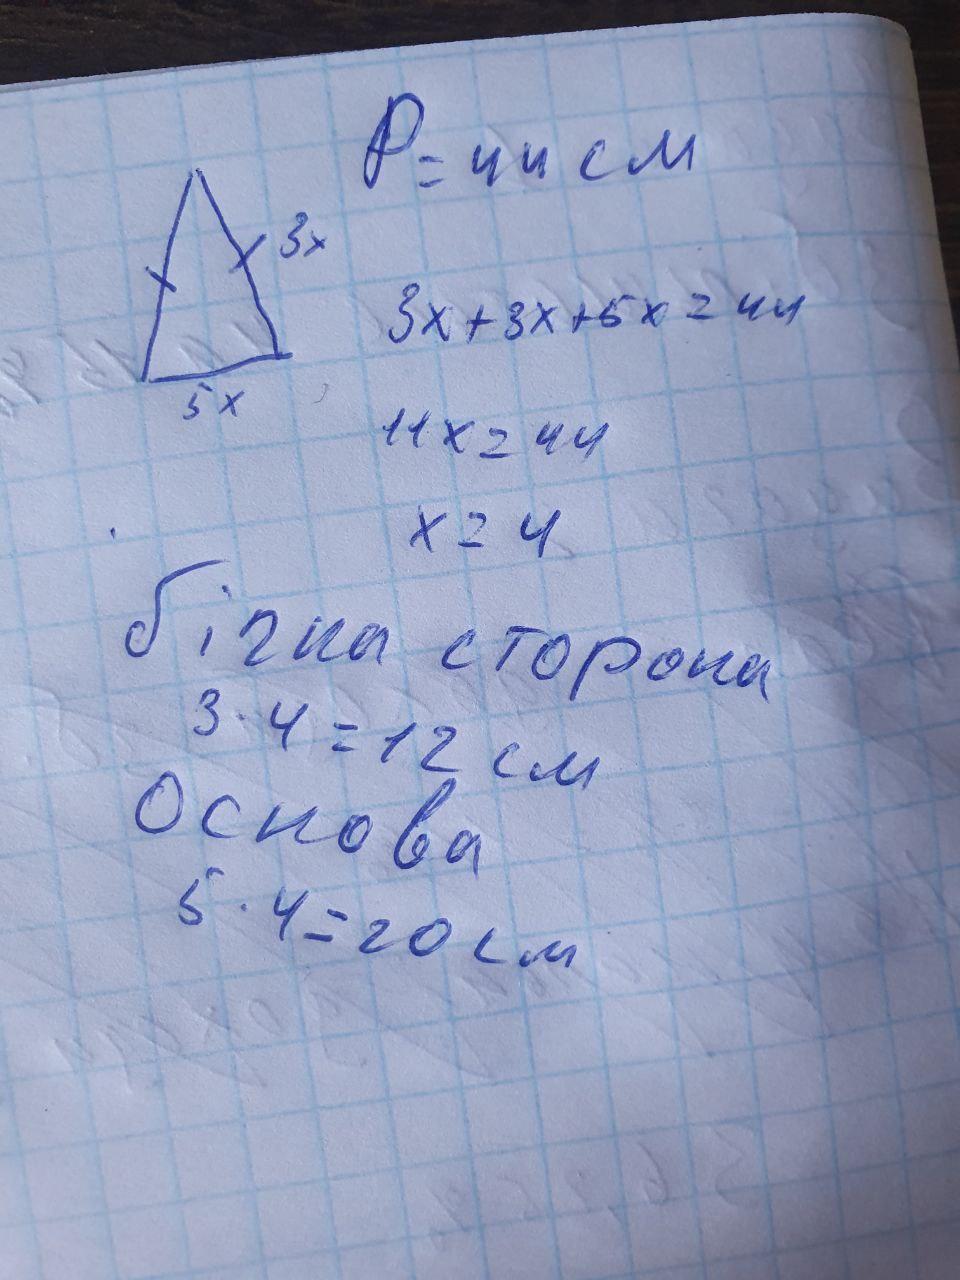 P = 44 см
3x
5x
3x+3x+5x=44
11x=44
x=4
бічна сторона
3·4=12 см
Основа
5·4=20 см